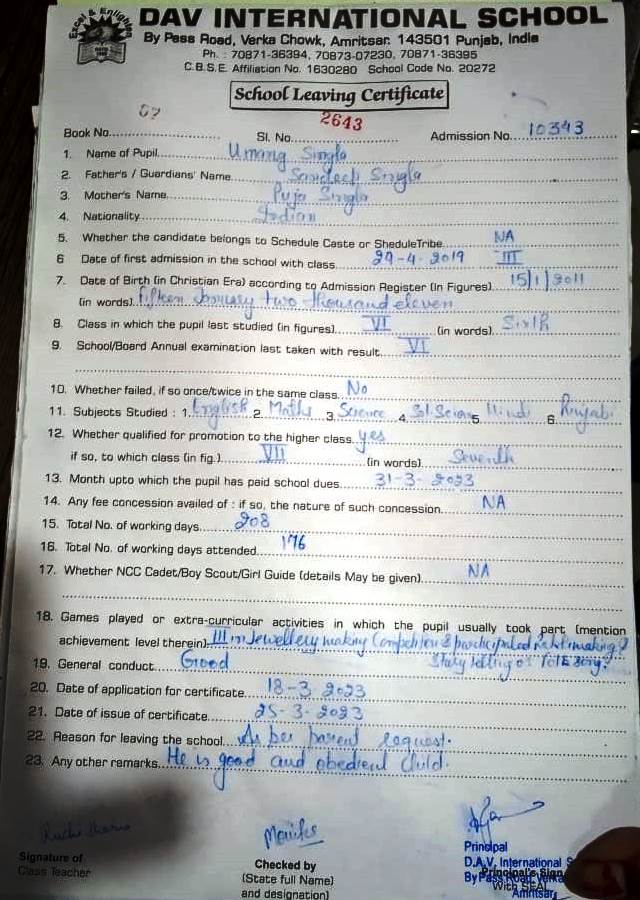 Excel & Enlighten
DAV INTERNATIONAL SCHOOL
By Pass Road, Verka Chowk, Amritsar. 143501 Punjab, India
Ph. : 70871-36394, 70873-07230, 70871-36395
C.B.S.E. Affiliation No. 1630280 School Code No. 20272
School Leaving Certificate
Book No. 52 Sl. No. 2643 Admission No. 10343
1. Name of Pupil Umang Singla
2. Father's / Guardians' Name Sandeep Singla
3. Mother's Name Puja Singla
4. Nationality Indian
5. Whether the candidate belongs to Schedule Caste or SheduleTribe NA
6 Date of first admission in the school with class 29-4-2019 III
7. Date of Birth (in Christian Era) according to Admission Register (In Figures) 15/1/2011
(in words) fifteen January two thousand eleven
8. Class in which the pupil last studied (in figures) VI (in words) Sixth
9. School/Board Annual examination last taken with result VI
10. Whether failed, if so once/twice in the same class No
11. Subjects Studied : 1. English 2. Maths 3. Science 4. S.St. 5. Hindi 6. Punjabi
12. Whether qualified for promotion to the higher class yes
if so, to which class (in fig.) VII (in words) Seventh
13. Month upto which the pupil has paid school dues 31-3-2023
14. Any fee concession availed of : if so, the nature of such concession NA
15. Total No. of working days 208
16. Total No. of working days attended 176
17. Whether NCC Cadet/Boy Scout/Girl Guide (details May be given) NA
18. Games played or extra-curricular activities in which the pupil usually took part (mention
achievement level therein) III in Jewellery making Competition & participated in making
Story telling
19. General conduct Good
20. Date of application for certificate 18-3-2023
21. Date of issue of certificate 25-3-2023
22. Reason for leaving the school As per parent request.
23. Any other remarks He is good and obedient Child.
Signature of
Class Teacher
Checked by
(State full Name)
and designation)
Principal
D.A.V. International
Principal's Sign
By Pass Road, Verka
With SEAL
Amritsar